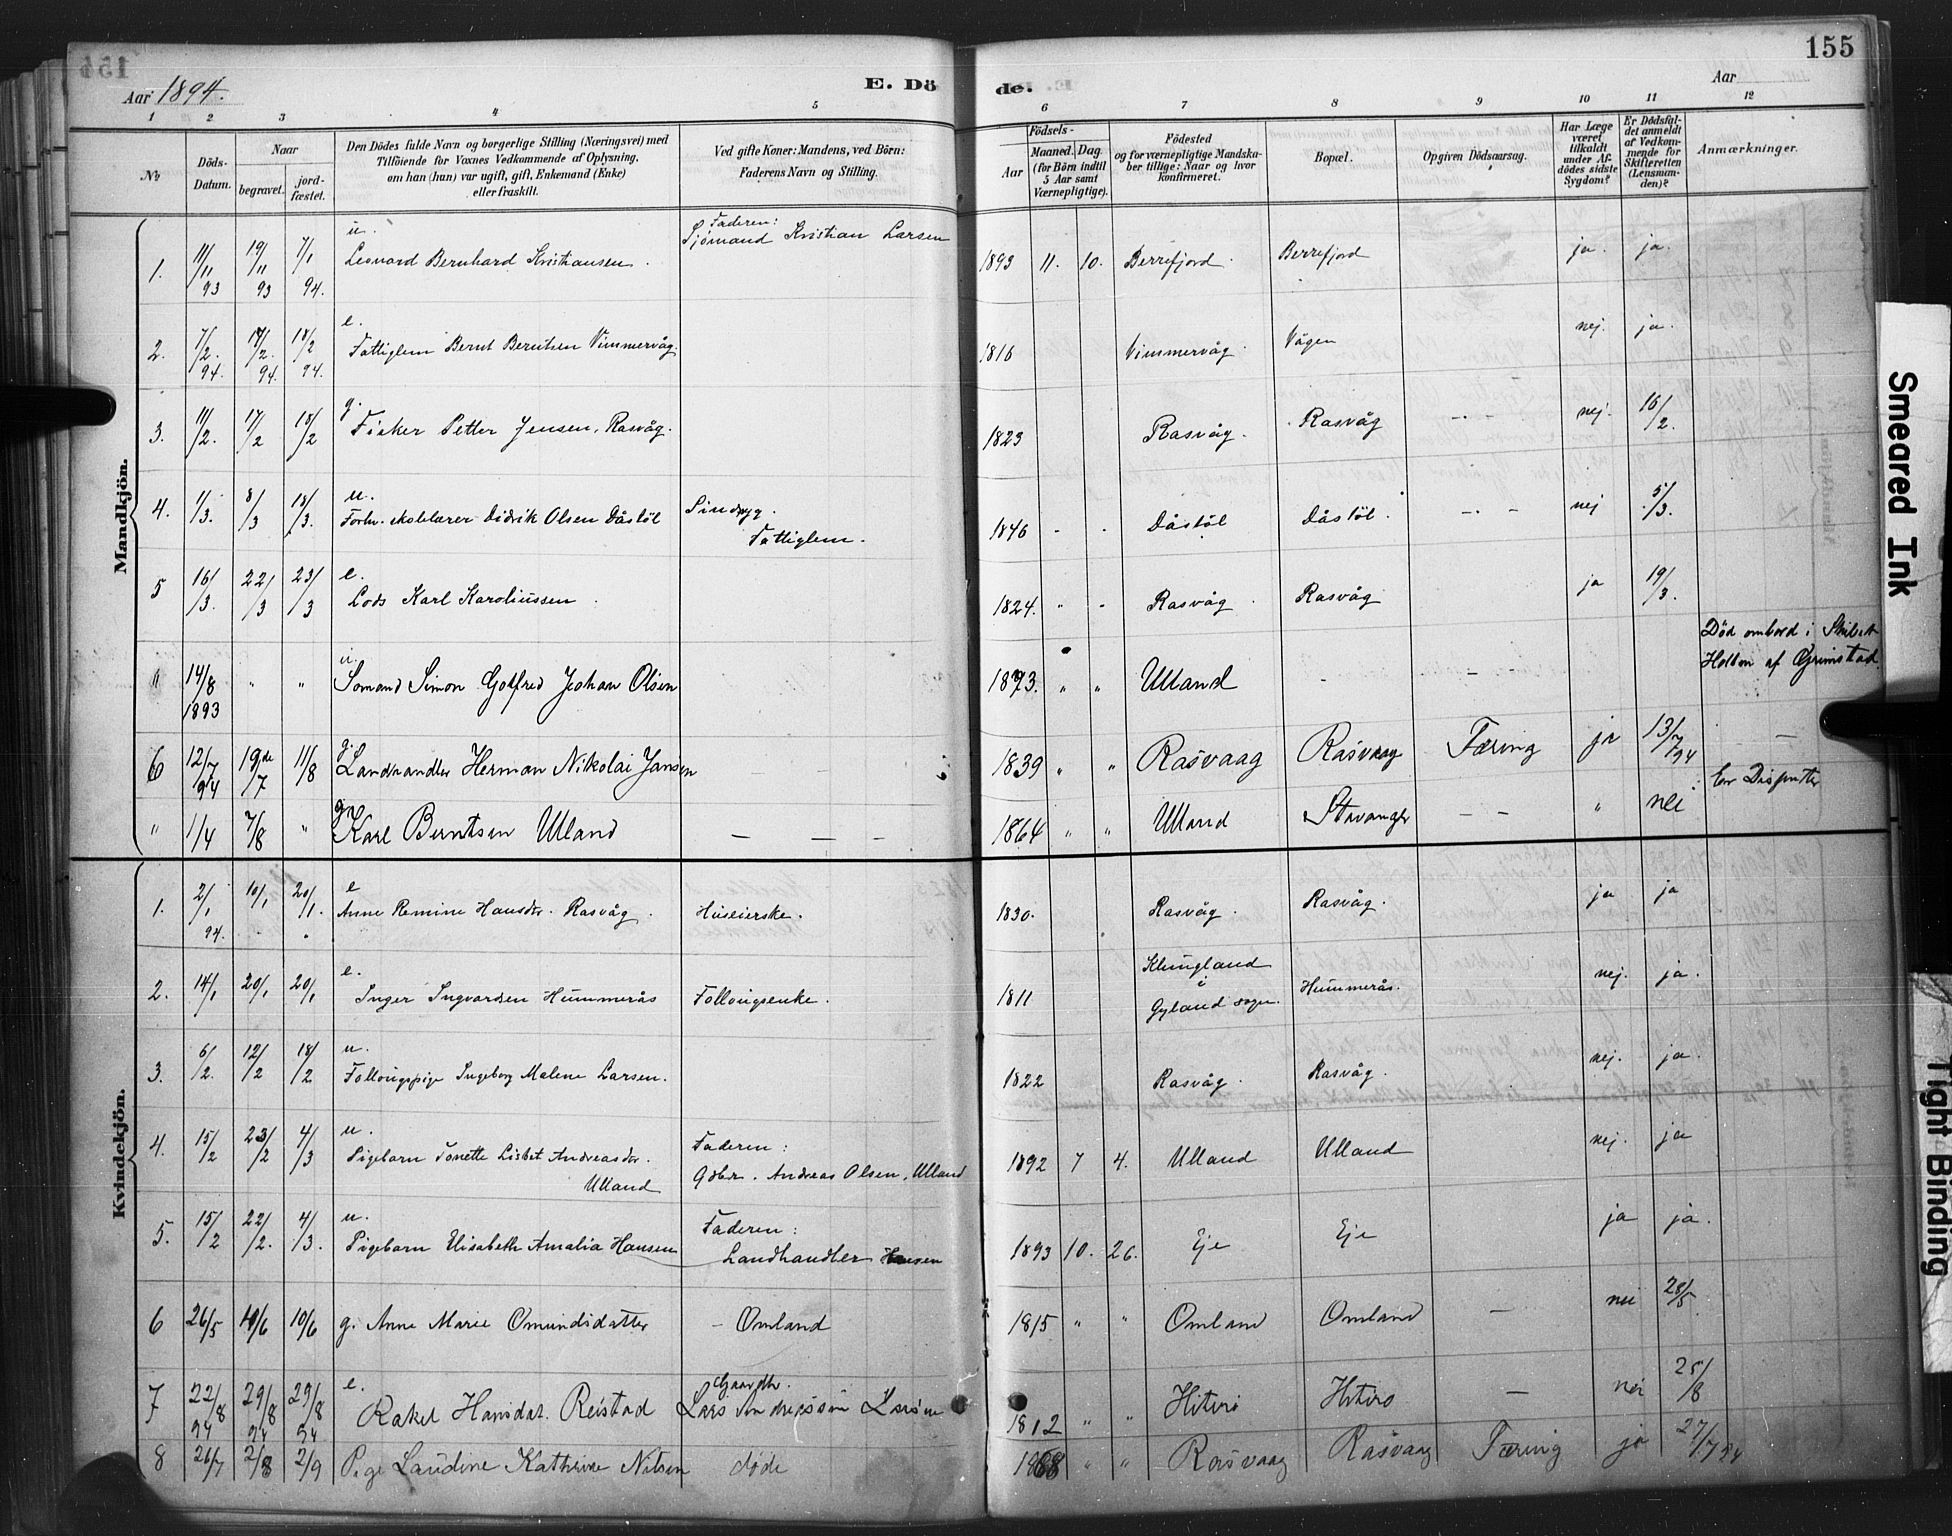 155
Aar 1894.
E. Dö
de.
Aar
1 2 3 4 5 6 7 8 9 10 11 12
№
Döds-Datum.
Naar
begravet.
jord-fæstet.
Den Dödes fulde Navn og borgerlige Stilling (Næringsvei) med
Tilföiende for Voxnes Vedkommende af Oplysning,
om han (hun) var ugift, gift, Enkemand (Enke)
eller fraskilt.
Ved gifte Koner: Mandens, ved Börn:
Faderens Navn og Stilling.
Födsels-
Aar
Maaned. Dag
(for Börn indtil
5 Aar samt
Værnepligtige).
Födested
og for værnepligtige Mandska-
ber tillige: Naar og hvor
konfirmeret.
Bopæl.
Opgiven Dödsaarsag.
Har Læge
været
tilkaldt
under Af-
dödes sidste
Sygdom?
Er Dödsfal-
det anmeldt
af Vedkom-
mende for
Skifteretten
(Lensman-
den)?
Anmærkninger.
Mandkjön.
1. 11/11 93 19/11 93 7/1 94. u. Leonard Bernhard Kristiansen. Faderen: Sjömand Kristian Larsen 1893 11. 10. Berrefjord. Berrefjord ja. ja.
2. 7/2. 94. 17/2. 94. 18/2 94. e. Fattiglem Bernt Berntsen Vimmervåg. 1816 Vimmervåg. Vågen nej. ja.
3. 11/2. 17/2 18/2 g. Fisker Petter Jensen, Rasvåg. 1823 Rasvåg. Rasvåg nej. 16/2.
4. 1/3. 8/3 18/3. u. Forhv. skolelærer Didrik Olsen Dåstöl Sindsyg. Fattiglem. 1846 - - Dåstöl Dåstöl. nej 5/3.
5 16/3. 22/3 23/3 e. Lods Karl Karoliussen. 1824. " " Rasvåg. Rasvåg ja 19/3.
" 14/8 1893 " " u. Sömand Simon Gotfred Johan Olsen 1873. " " Ulland - - Död ombord i Skibet
Holton af Grimstad.
6 12/7 94 19de/7 11/8 g. Landhandler Herman Nikolai Jansen 1839 " " Rasvaag Rasvaag Tæring ja 13/7 94 —
" 1/4 7/8 " g. Karl Berntsen Ulland — — — 1864 " " Ulland Stavanger - - " nei
Kvindekjön.
1. 2/1 94. 10/1 20/1. e Anne Remine Hansdtr. Rasvåg. Huseierske. 1830. Rasvåg. Rasvåg. ja ja
2. 14/1 20/1 20/1 e. Inger Ingvardsen Hummerås Follougsenke. 1811 Klungland i Gyland sogn. Hummerås. nej. ja.
3. 6/2. 12/2 18/2 u. Follougspige Ingeborg Malene Larsen. 1822 Rasvåg. Rasvåg. nej. ja.
4. 15/2 23/2 4/3 u. Pigebarn Tonette Lisbet Andreasdtr.
Ulland Faderen:
Gdbr. Andreas Olsen, Ulland 1892 7 4. Ulland Ulland nej. ja
5. 15/2 22/2. 4/3. u. Pigebarn Elisabeth Amalia Hansen Faderen:
Landhandler Hansen 1893 10. 26. Eje Eje ja ja.
6 26/5 10/6 10/6 g. Anne Marie Omundsdatter - Omland 1815 " " Omland Omland — nei 28/5
7 22/8 94 29/8 94 29/8 94 e. Rakel Hansdat. Reistad Gaardbr. Lars 1812 " " Hitterö Hitterö — nei 25/8
8 26/7 2/8 2/9 Pige Laudine Kathrine Nilsen döde 1868 " " Rasvaag Rasvaag Tæring ja 27/7 94
Smeared Ink
Tight Binding